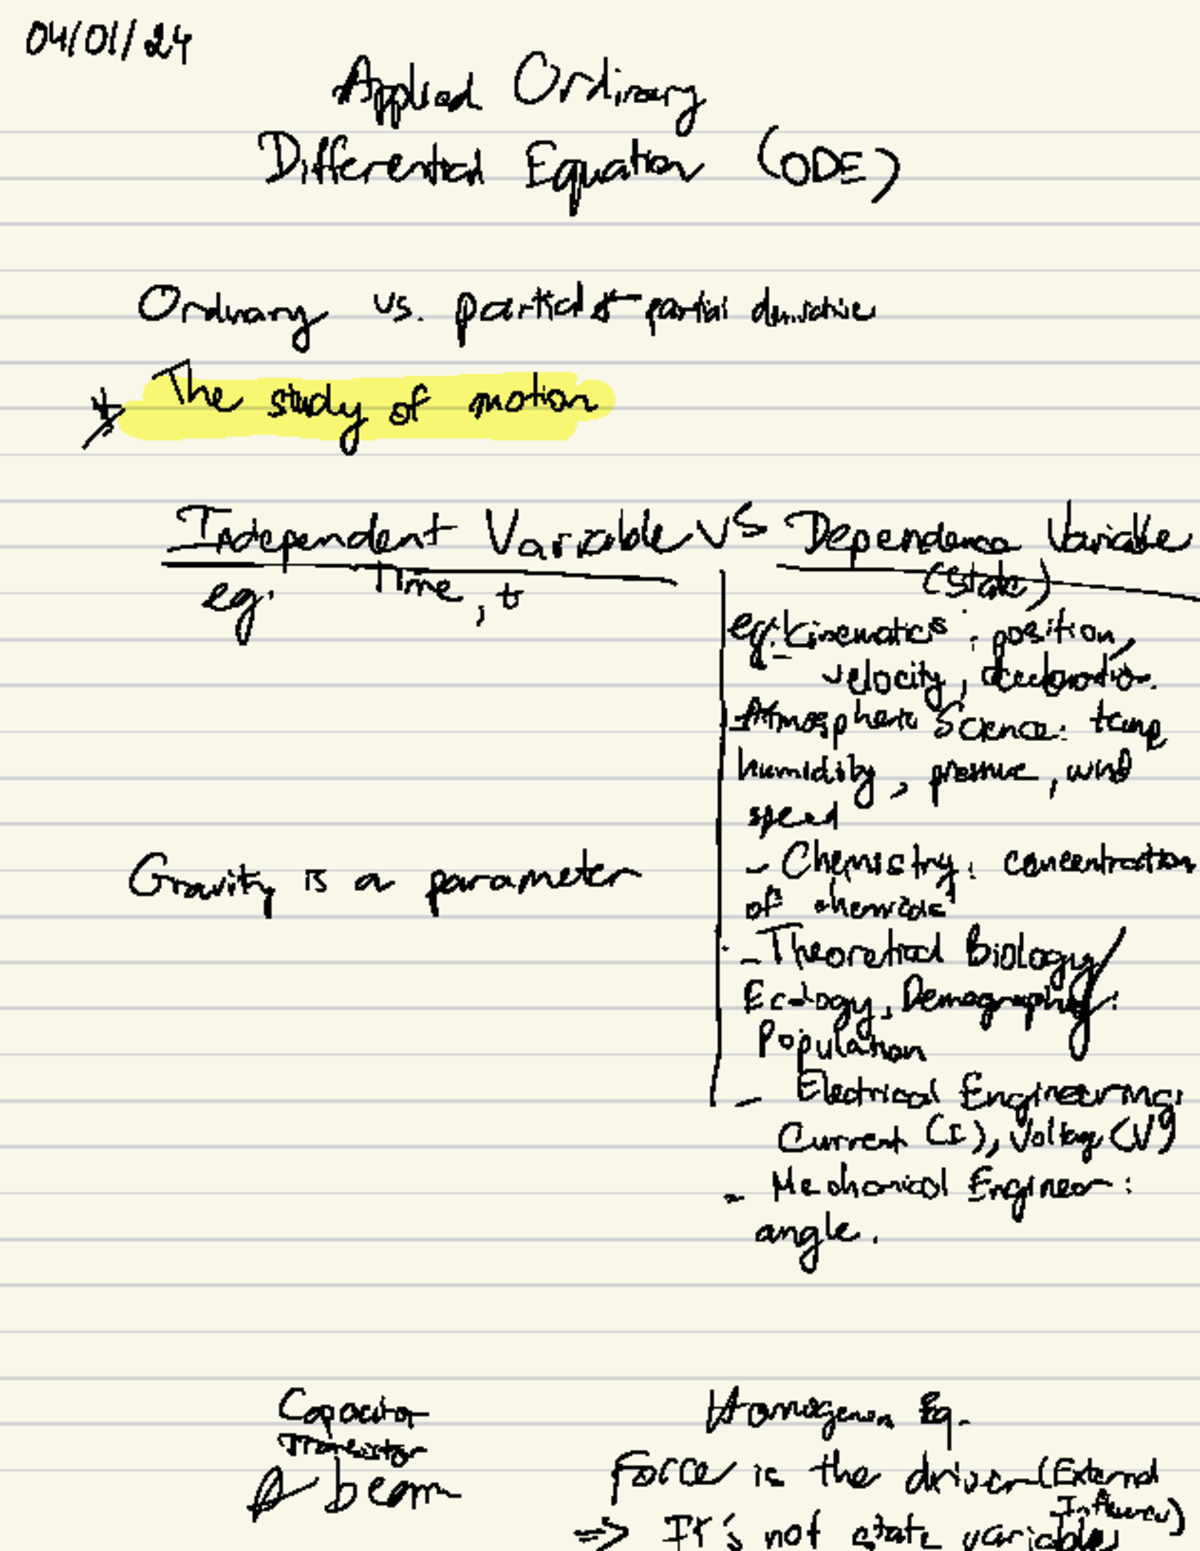 04/01/24
Applied Ordinary
Differential Equation (ODE)
Ordinary vs. partial partial derivative
The study of motion
Independent Variable VS Dependence Variable
(State)
eg: Time, t
eg: Kinematics: position,
velocity, acceleration.
- Atmospheric Science: temp
humidity, pressure, wind
speed
- Chemistry: concentration
of chemicals
- Theoretical Biology/
Ecology, Demography:
Population
- Electrical Engineering:
Current (I), Voltage (V)
- Mechanical Engineer:
angle.
Gravity is a parameter
Capacitor
Transistor
beam
Homogenen Eq.
Force is the driver (External
Influence)
=> It's not state variable